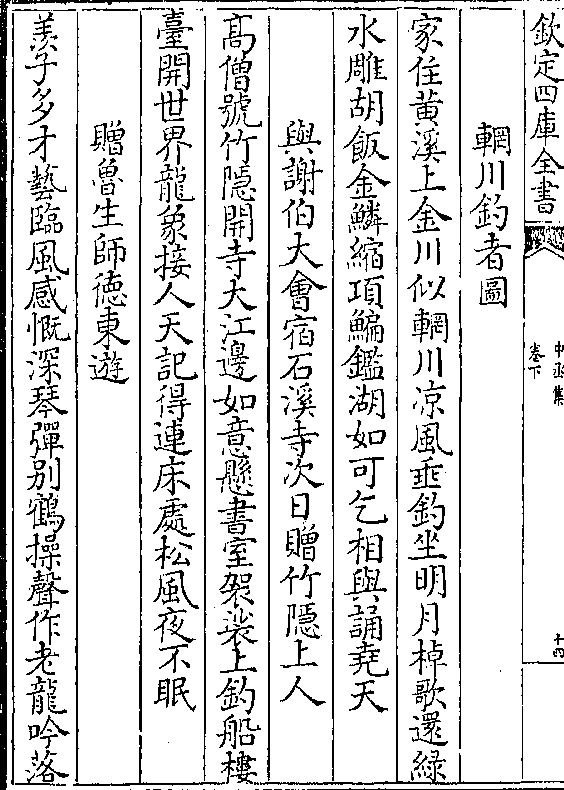 欽定四庫全書
中丞集
卷下
十四
輞川釣者圖
家住黄溪上金川似輞川凉風垂釣坐明月棹歌還緑
水雕胡飯金鱗縮項鯿鑑湖如可乞相與誦堯天
與謝伯大會宿石溪寺次日贈竹隠上人
髙僧號竹隠開寺大江邊如意懸書室袈裟上釣船樓
臺開世界龍象接人天記得連床處松風夜不眠
贈魯生師徳東遊
羨子多才藝臨風感慨深琴彈别鶴操聲作老龍吟落